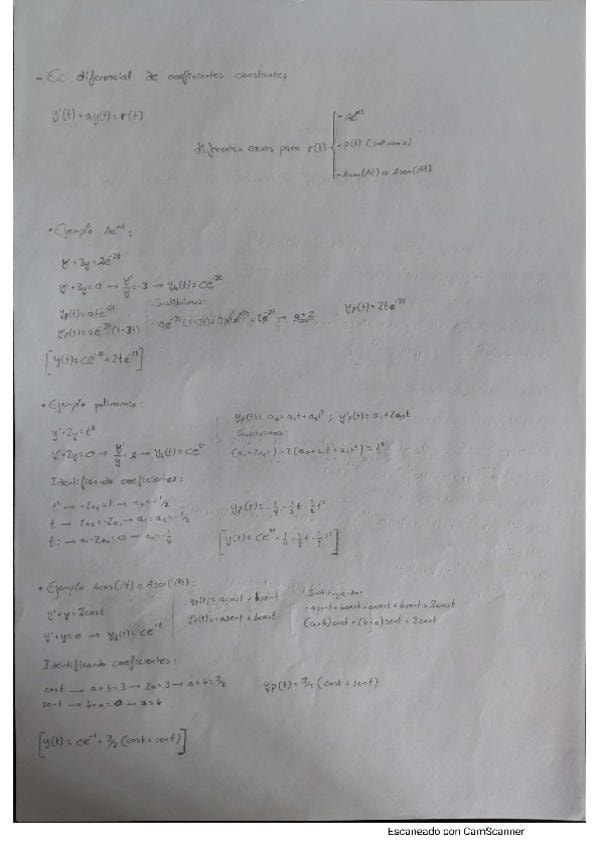 - Ec diferencial de coeficientes constantes
y'(t) = ay(t) = r(t)
diferentes casos para r(t)
- Ae^nt
- P(t) (polinomio)
- Acos(At) o Asen(At)
• Ejemplo Ae^nt:
y' + 3y = 2e^-3t
y' + 3y = 0 → y'/y = -3 → yh(t) = ce^-3t
Sustituimos:
yp(t) = ate^-3t
yp(t) = 2te^-3t
yp'(t) = ae^-3t (1-3t)
→ a = 2
[y(t) = ce^-3t + 2te^-3t]
• Ejemplo polinomio:
y' - 2y = t²
y' - 2y = 0 → y'/y = 2 → yh(t) = ce^2t
yp(t) = a₀ + a₁t + a₂t² ; y'p(t) = a₁ + 2a₂t
Sustituimos:
(a₁ + 2a₂t) - 2(a₀ + a₁t + a₂t²) = t²
Identificando coeficientes:
t² → -2a₂ = 1 → a₂ = -1/2
t → 2a₂ = 2a₁ → a₁ = a₂ = -1/2
t: → a₁ - 2a₀ = 0 → a₀ = -1/4
yp(t) = -1/4 - 1/2 t - 1/2 t²
[y(t) = ce^2t - 1/4 - 1/2 t - 1/2 t²]
• Ejemplo Acos(At) o Asen(At):
y' + y = 3cost
y' + y = 0 → yh(t) = ce^-t
yp(t) = acost + bsent
y'p(t) = -asent + bcost
Sustituyendo:
-asent + bcost + acost + bsent = 3cost
(a+b)cost + (b-a)sent = 3cost
Identificando coeficientes:
cost → a + b = 3 → 2a = 3 → a = b = 3/2
sent → b - a = 0 → a = b
yp(t) = 3/2 (cost + sent)
[y(t) = ce^-t + 3/2 (cost + sent)]
Escaneado con CamScanner